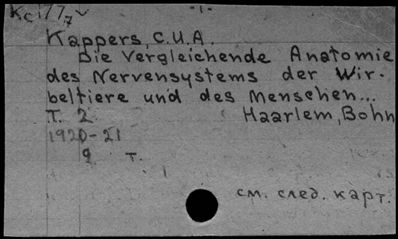 Kc 177 7 -1-
Kappers, C.U.A.
Die Vergleichende Anatomie
des Nervensystems der Wir-
beltiere und des Menschen...
T. 2 Haarlem, Bohn
1920-21
2 т.
см. след. карт.